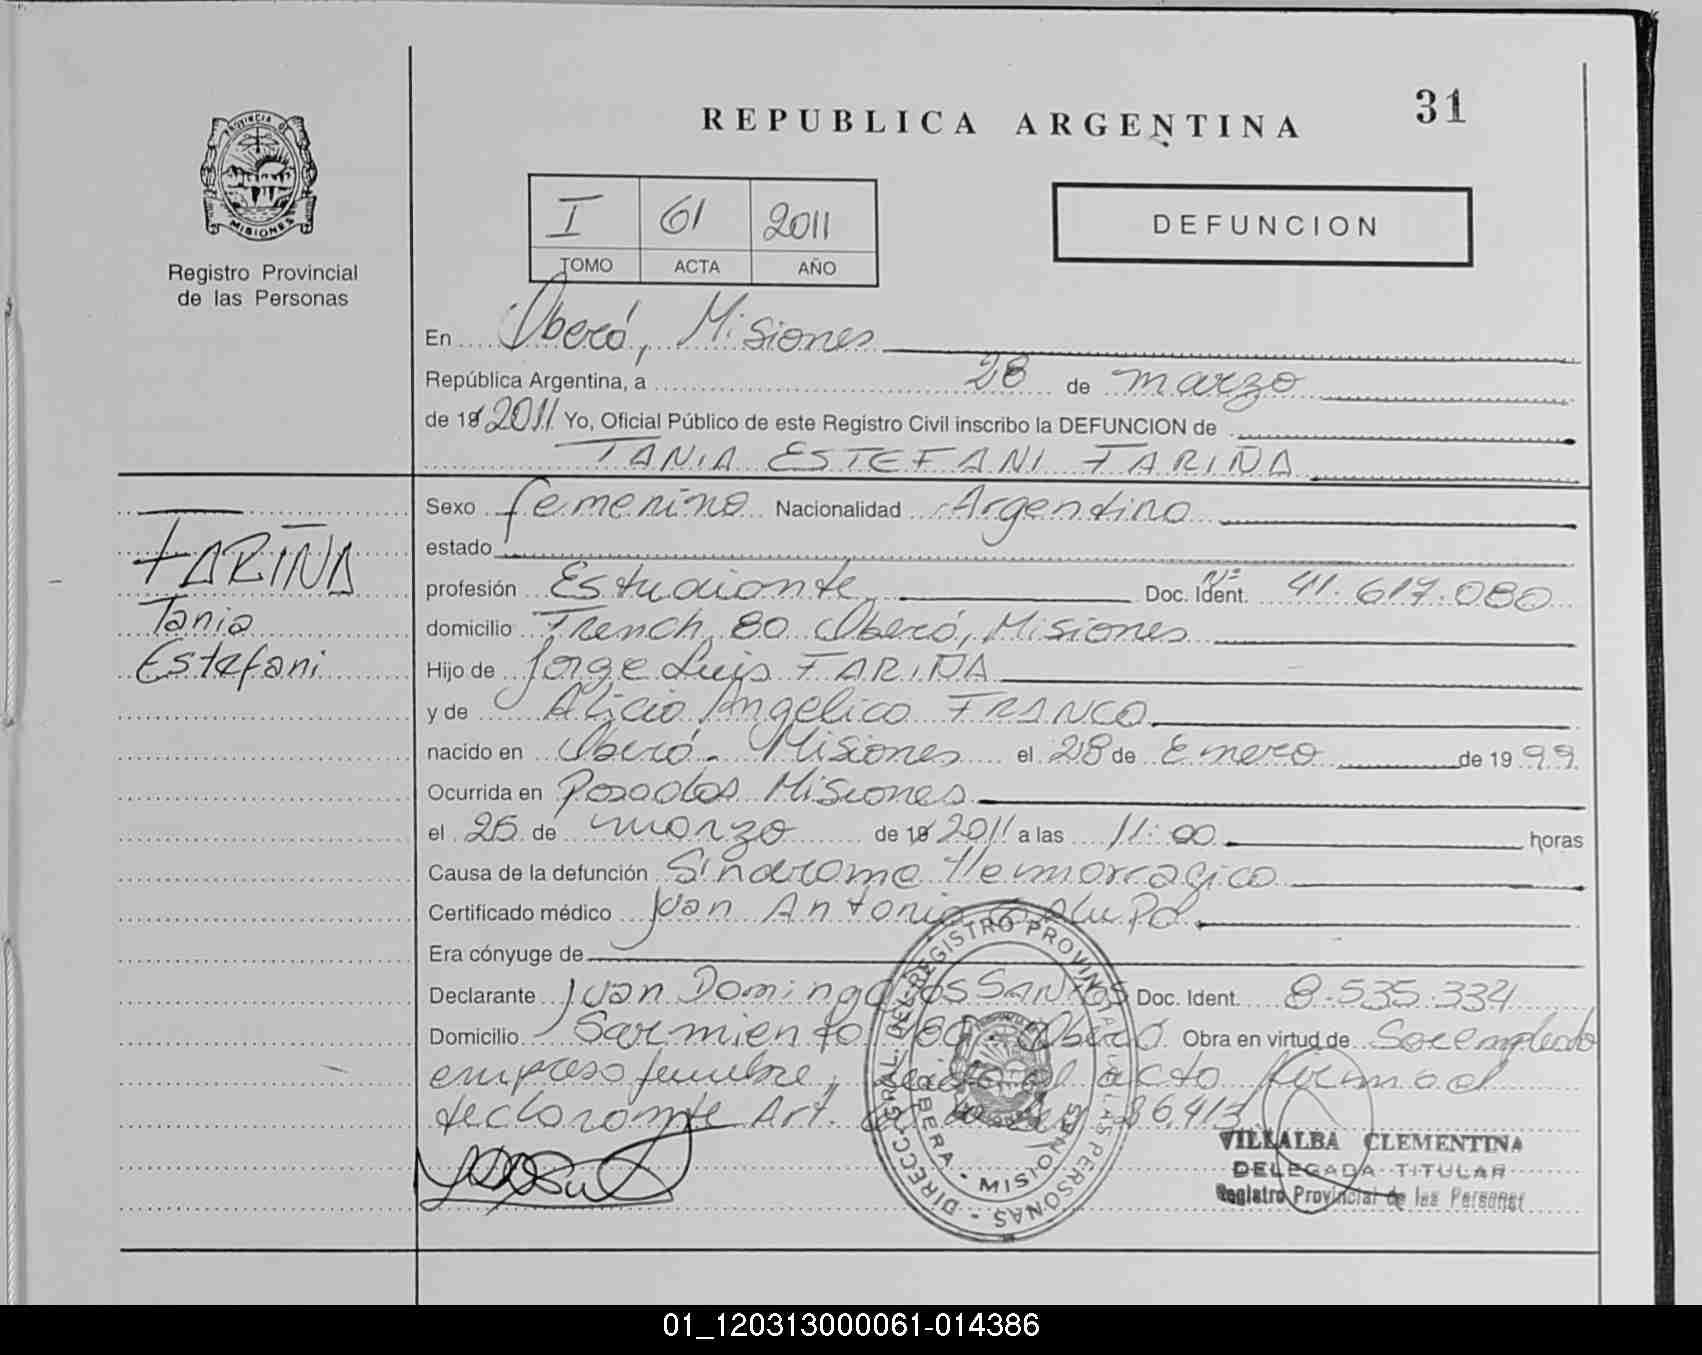 REPUBLICA ARGENTINA
31
PROVINCIA DE
MISIONES
Registro Provincial
de las Personas
I 61 2011
TOMO ACTA AÑO
DEFUNCION
En Oberá, Misiones
República Argentina, a 28 de marzo
de 19 2011 Yo, Oficial Público de este Registro Civil inscribo la DEFUNCION de
TANIA ESTEFANI FARIÑA
FARIÑA
Tania
Estefani
Sexo femenino Nacionalidad Argentina
estado
profesión Estudiante Doc. Ident. Nº 41.617.080
domicilio French 80 Oberá, Misiones
Hijo de Jorge Luis FARIÑA
y de Alicia Angelica FRANCO
nacido en Oberá - Misiones el 28 de Enero de 1999
Ocurrida en Posadas Misiones
el 25 de marzo de 19 2011 a las 11:00 horas
Causa de la defunción Sindrome Hemorragico
Certificado médico Juan Antonio
Era cónyuge de
Declarante Juan Domingo DOS SANTOS Doc. Ident. 8.535.334
Domicilio Sarmiento Oberá Obra en virtud de Ser empleado
empresa funebre, el acto firma el
declarante Art.
DIRECC. GRAL. DEL REGISTRO PROVINCIAL DE LAS PERSONAS
OBERA - MISIONES
VILLALBA CLEMENTINA
DELEGADA TITULAR
Registro Provincial de las Personas
01_120313000061-014386